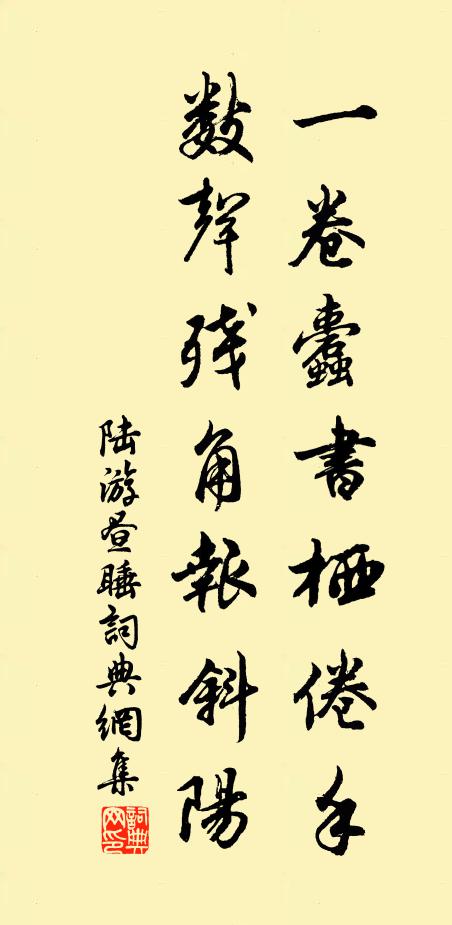 一卷蠹書栖倦手
數聲殘角報斜陽
陸游晝睡詞典網集
詞典网印